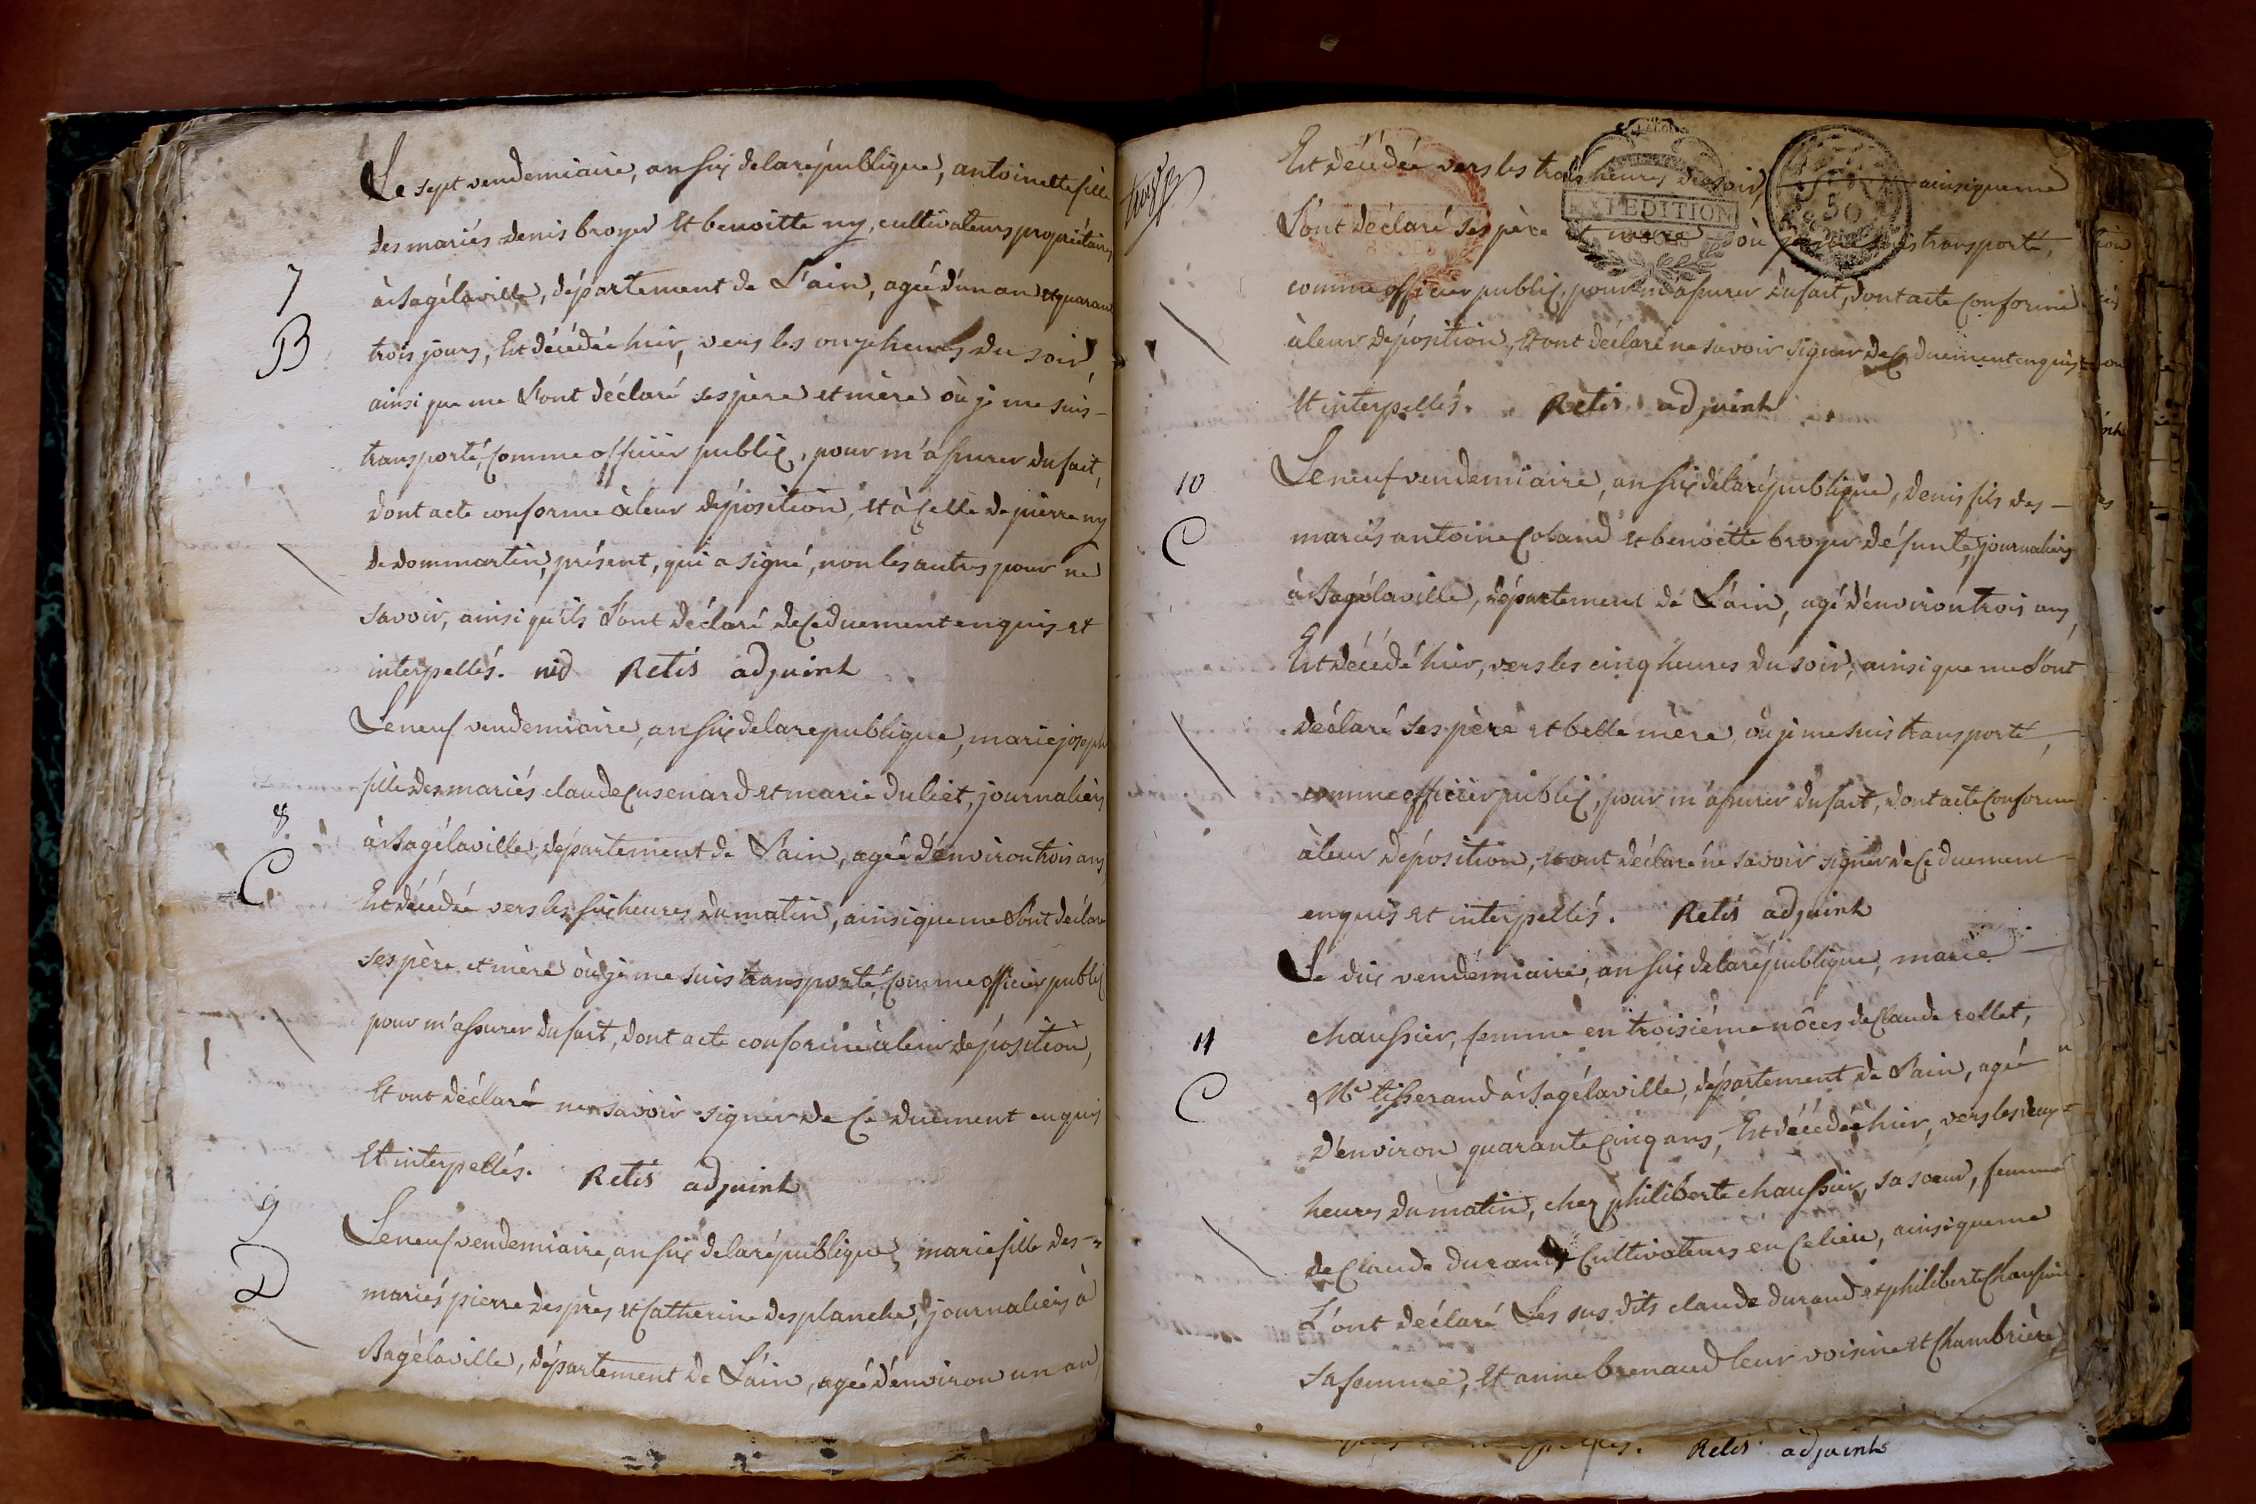 Le sept vendemiaire, an six de la république, antoinette fille
des mariés denis broyer et benoitte ny, cultivateurs propriétaires
7
à Bagélaville, département de L'ain, agée d'un an et quaran
B
trois jours, Est décédée hier, vers les onze heures du soir,
ainsi que me L'ont déclaré ses père et mère où je me suis -
transporté, comme officier public, pour m'assurer du fait,
dont acte conforme à leur déposition, et à celle de pierre ny
de dommartin, présent, qui a signé, non les autres pour ne
savoir, ainsi qu'ils L'ont déclaré de ce duement enquis et
interpellés. nid Retis adjoint
Le neuf vendemiaire, an six de la republique, marie joseph
fille des mariés claude Cusenard et marie duliet, journaliers
8.
à Bagélaville, département de L'ain, agée d'environ trois ans,
C
Est décédée vers les six heures du matin, ainsi que me L'ont déclaré
ses père et mère où je me suis transporté, comme officier public
pour m'assurer du fait, dont acte conforme à leur déposition,
Et ont déclaré ne savoir signer de ce duement enquis
Et interpellés. Retis adjoint
9
Le neuf vendemiaire, an six de la république, marie fille des -
D
mariés pierre desprès et Catherine desplanche, journaliers à
Bagélaville, département de L'ain, agée d'environ un an,
Est décédée vers les trois heures du soir, ainsi que me
EXPEDITION
50
L'ont déclaré ses père et mère où je me suis transporté,
comme officier public, pour m'assurer du fait, dont acte conforme
à leur déposition, Et ont déclaré ne savoir signer de ce duement enquis
Et interpellés. Retis adjoint
10
Le neuf vendemiaire, an six de la république, denis fils des -
C
mariés antoine Coband et benoitte broyer défunte, journaliers
à Bagélaville, département de L'ain, agé d'environ trois ans,
Est décédé hier, vers les cinq heures du soir, ainsi que me L'ont
déclaré ses père et belle mère où je me suis transporté,
comme officier public, pour m'assurer du fait, dont acte conforme
à leur déposition, et ont déclaré ne savoir signer de ce duement
enquis et interpellés. Retis adjoint
Le dix vendémiaire, an six de la république, marie
11
chaussier, femme en troisiéme nôces de Claude rollet,
C
Me tisserand à Bagélaville, département de L'ain, agée
d'environ quarante cinq ans, Est décédée hier, vers les deux
heures du matin, chez philiberte chaussier, sa soeur, femme
de Claude durand Cultivateurs en ce lieu, ainsi que me
L'ont déclaré Les sus dits claude durand et philiberte Chaussier
sa femme, Et anne brenaud leur voisine et Chambrière
Retis adjoint